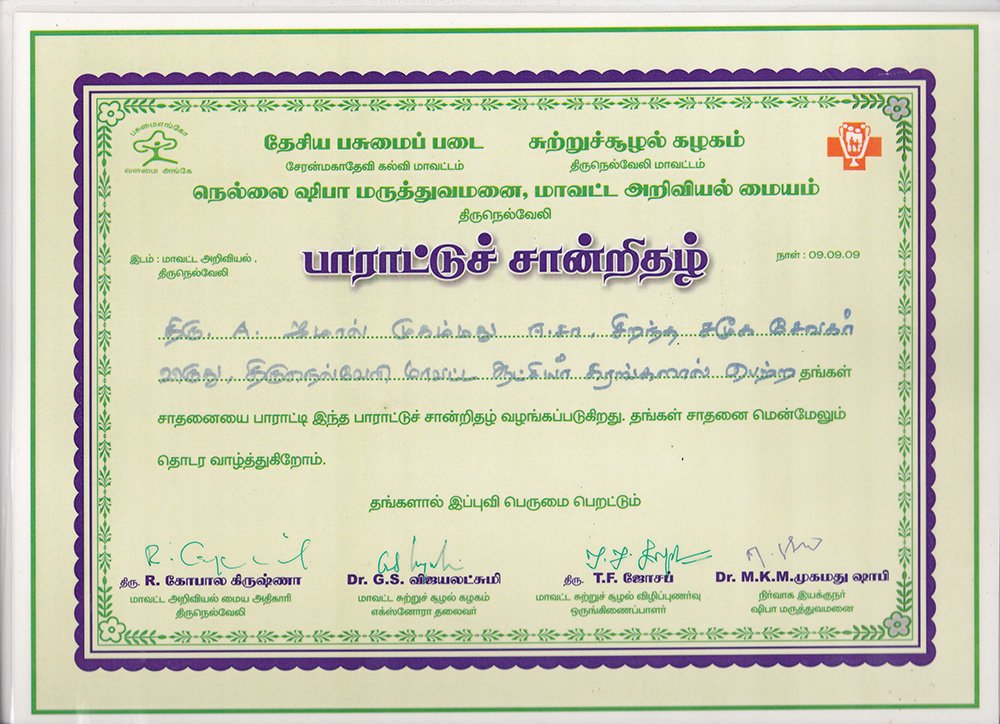 பசுமைஎங்கோ
வளமை அங்கே
தேசிய பசுமைப் படை சுற்றுச்சூழல் கழகம்
சேரன்மகாதேவி கல்வி மாவட்டம் திருநெல்வேலி மாவட்டம்
நெல்லை ஷிபா மருத்துவமனை, மாவட்ட அறிவியல் மையம்
திருநெல்வேலி
இடம் : மாவட்ட அறிவியல் .
திருநெல்வேலி
பாராட்டுச் சான்றிதழ்
நாள் : 09.09.09
திரு. A. ஜமால் முகம்மது ஈ.சா, சிறந்த சமூக சேவகர்
விருது, திருநெல்வேலி மாவட்ட ஆட்சியர் கரங்களால் பெற்ற தங்கள்
சாதனையை பாராட்டி இந்த பாராட்டுச் சான்றிதழ் வழங்கப்படுகிறது. தங்கள் சாதனை மென்மேலும்
தொடர வாழ்த்துகிறோம்.
தங்களால் இப்புவி பெருமை பெறட்டும்
திரு. R. கோபால கிருஷ்ணா
மாவட்ட அறிவியல் மைய அதிகாரி
திருநெல்வேலி
Dr. G.S. விஜயலட்சுமி
மாவட்ட சுற்றுச் சூழல் கழகம்
எக்ஸ்னோரா தலைவர்
திரு. T.F. ஜோசப்
மாவட்ட சுற்றுச் சூழல் விழிப்புணர்வு
ஒருங்கிணைப்பாளர்
Dr. M.K.M.முகமது ஷாபி
நிர்வாக இயக்குநர்
ஷிபா மருத்துவமனை